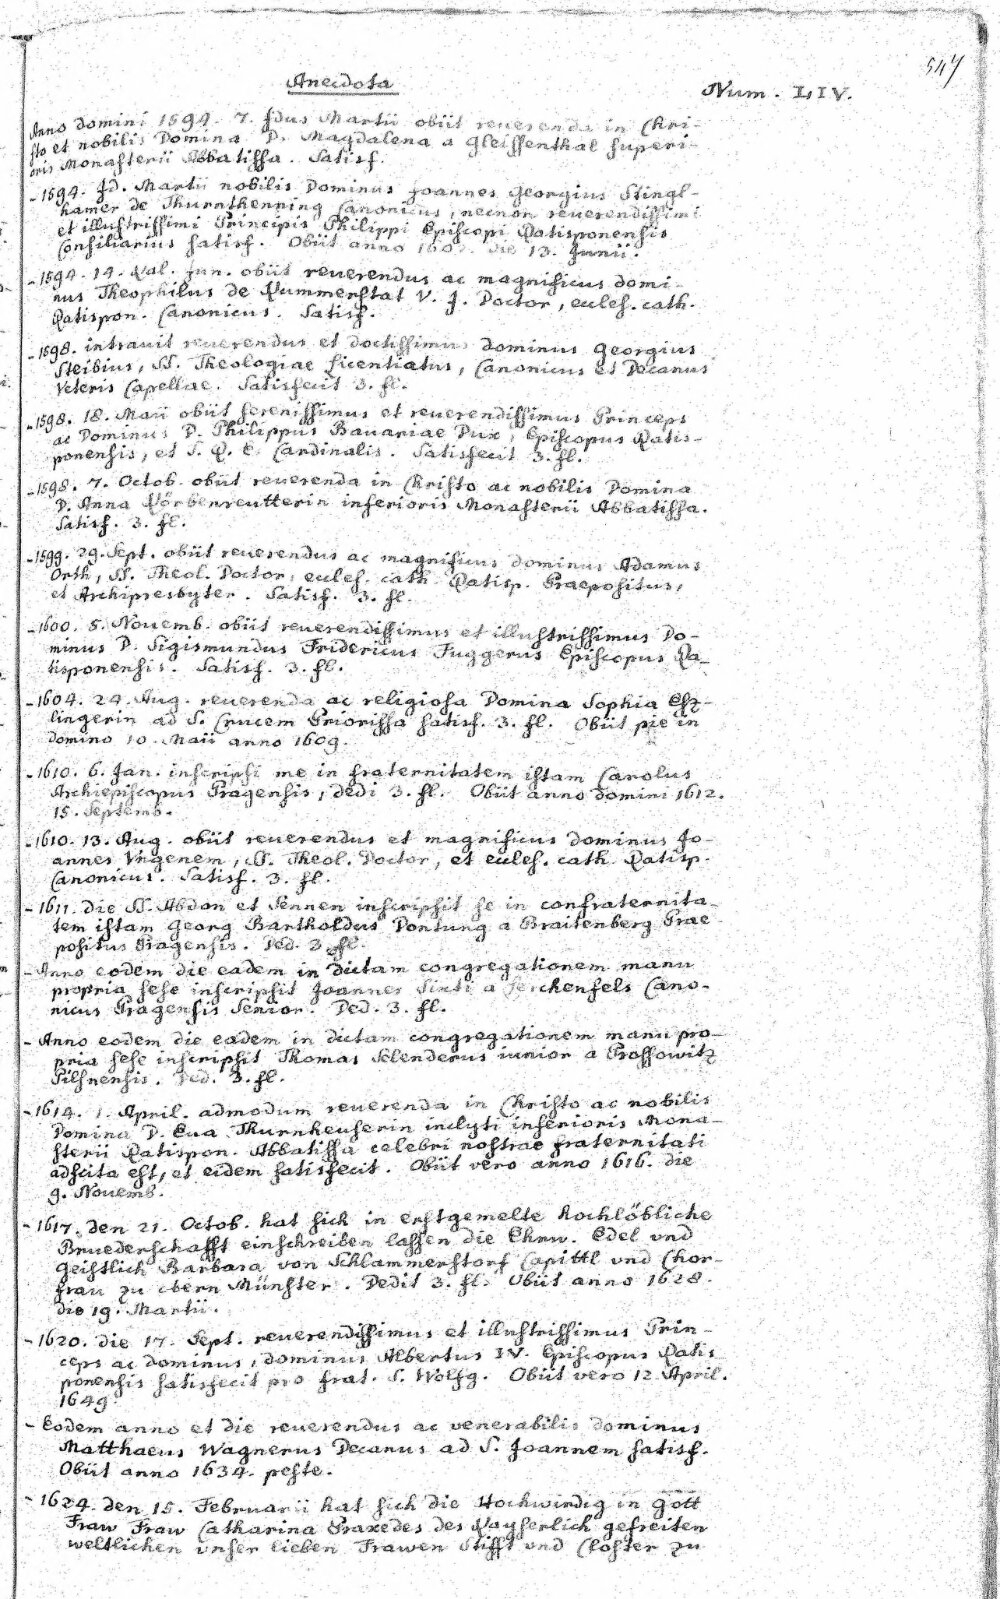 547
Anecdota
Num. LIV.
Anno domini 1594. 7. Jdus Martii obiit reuerenda in Chri-
sto et nobilis Domina D. Magdalena a Gleissenthal superi-
oris Monasterii Abbatissa. Satisf.
- 1594. Jd. Martii nobilis Dominus Joannes Georgius Stingl-
hamer de Thurnthenning Canonicus, necnon reuerendissimi
et illustrissimi Principis Philippi Episcopi Ratisponensis
Consiliarius satisf. Obiit anno die 13. Junii.
- 1594. 14. Kal. Jun. obiit reuerendus ac magnificus domi-
nus Theophilus de Kummerstat V. J. Doctor, eccles. cath.
Ratispon. Canonicus. Satisf.
- 1598. intrauit reuerendus et doctissimus dominus Georgius
Steibius, SS. Theologiae Licentiatus, Canonicus et Decanus
Veteris Capellae. Satisfecit 3. fl.
- 1598. 18. Maii obiit serenissimus et reuerendissimus Princeps
ac Dominus D. Philippus Bauariae Dux, Episcopus Ratis-
ponensis, et S. R. E. Cardinalis. Satisfecit 3. fl.
- 1598. 7. Octob. obiit reuerenda in Christo ac nobilis Domina
D. Anna Körbenreutterin inferioris Monasterii Abbatissa.
Satisf. 3. fl.
- 1599. 29. Sept. obiit reuerendus ac magnificus dominus Adamus
Orth, SS. Theol. Doctor, eccles. cath. Ratisp. Praepositus,
et Archipresbyter. Satisf. 3. fl.
- 1600. 5. Nouemb. obiit reuerendissimus et illustrissimus Do-
minus D. Sigismundus Fridericus Fuggerus Episcopus Ra-
tisponensis. Satisf. 3. fl.
- 1604. 24. Aug. reuerenda ac religiosa Domina Sophia Esz-
lingerin ad S. Crucem Priorissa satisf. 3. fl. Obiit pie in
domino 10. Maii anno 1609.
- 1610. 6. Jan. inscripsi me in fraternitatem istam Carolus
Archiepiscopus Pragensis, dedi 3. fl. Obiit anno domini 1612.
15. Septemb.
- 1610. 13. Aug. obiit reuerendus et magnificus dominus Jo-
annes Vngenem, SS. Theol. Doctor, et eccles. cath. Ratisp.
Canonicus. Satisf. 3. fl.
- 1611. die SS. Abdon et Sennen inscripsit se in confraternita-
tem istam Georg Bartholdus Pontung a Braitenberg Prae
positus Pragensis. Ded. 3. fl.
- Anno eodem die eadem in dictam congregationem manu
propria sese inscripsit Joannes Sixti a Lerchenfels Cano-
nicus Pragensis Senior. Ded. 3. fl.
- Anno eodem die eadem in dictam congregationem manu pro-
pria sese inscripsit Thomas Sclenderus iunior a Prossowitz
Pilsnensis. Ded. 3. fl.
- 1614. 1. April. admodum reuerenda in Christo ac nobilis
Domina D. Eua Thurnheuserin inclyti inferioris Mona-
sterii Ratispon. Abbatissa celebri nostrae fraternitati
adscita est, et eidem satisfecit. Obiit vero anno 1616. die
9. Nouemb.
- 1617. den 21. Octob. hat sich in erstgemelte hochlöbliche
Bruederschafft einschreiben lassen die Ehrw. Edel vnd
geistlich Barbara von Schlammerstorf Capittl vnd Chor-
frau zu obern Münster. Dedit 3. fl. Obiit anno 1628.
die 19. Martii.
- 1620. die 17. Sept. reuerendissimus et illustrissimus Prin-
ceps ac dominus, dominus Albertus IV. Episcopus Ratis
ponensis satisfecit pro frat. S. Wolfg. Obiit vero 12 April.
1649.
- Eodem anno et die reuerendus ac venerabilis dominus
Matthaeus Wagnerus Decanus ad S. Joannem satisf.
Obiit anno 1634. peste.
- 1624. den 15. Februarii hat sich die Hochwirdig in Gott
Fraw Fraw Catharina Praxedes des Kayserlich gefreiten
weltlichen vnser lieben Frawen Stifft vnd Closter zu